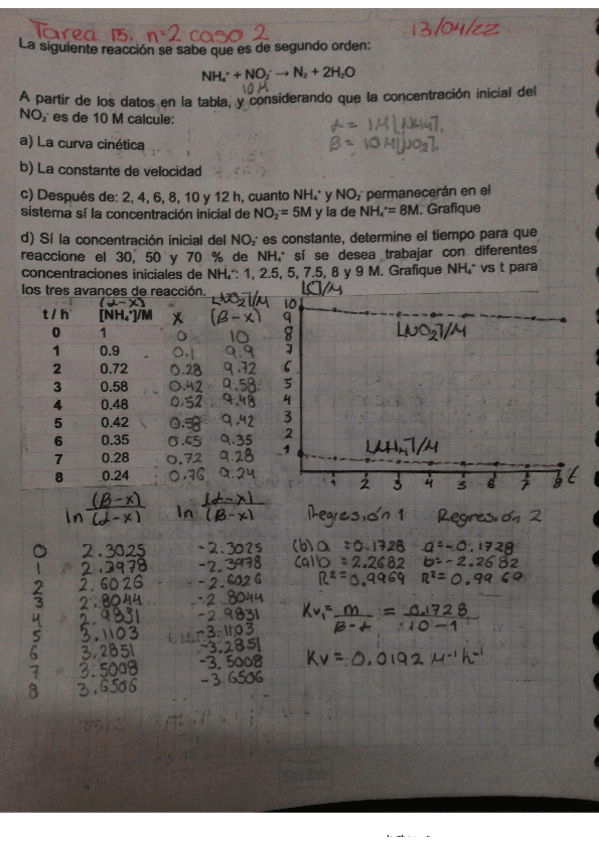 Tarea 15. n=2 caso 2 13/04/22
La siguiente reacción se sabe que es de segundo orden:
NH₄⁺ + NO₂⁻ → N₂ + 2H₂O
10 M
A partir de los datos en la tabla, y considerando que la concentración inicial del
NO₂⁻ es de 10 M calcule:
α = 1M [NH₄⁺].
a) La curva cinética
β = 10M [NO₂⁻].
b) La constante de velocidad
c) Después de: 2, 4, 6, 8, 10 y 12 h, cuanto NH₄⁺ y NO₂⁻ permanecerán en el
sistema sí la concentración inicial de NO₂⁻= 5M y la de NH₄⁺= 8M. Grafique
d) Sí la concentración inicial del NO₂⁻ es constante, determine el tiempo para que
reaccione el 30, 50 y 70 % de NH₄⁺ sí se desea trabajar con diferentes
concentraciones iniciales de NH₄⁺: 1, 2.5, 5, 7.5, 8 y 9 M. Grafique NH₄⁺ vs t para
los tres avances de reacción.
(α-x) [NO₂⁻]/M [C]/M
t / h [NH₄⁺]/M x (β-x)
0 1 0 10
1 0.9 0.1 9.9
2 0.72 0.28 9.72
3 0.58 0.42 9.58
4 0.48 0.52 9.48
5 0.42 0.58 9.42
6 0.35 0.65 9.35
7 0.28 0.72 9.28
8 0.24 0.76 9.24
10
9
8
7
6
5
4
3
2
1
[NO₂⁻]/M
[NH₄⁺]/M
1 2 3 4 5 6 7 8 t
ln (β-x)/(α-x) ln (α-x)/(β-x) Regresión 1 Regresión 2
0 2.3025 -2.3025
1 2.3978 -2.3978
2 2.6026 -2.6026
3 2.8044 -2.8044
4 2.9831 -2.9831
5 3.1103 -3.1103
6 3.2851 -3.2851
7 3.5008 -3.5008
8 3.6506 -3.6506
(b) a = 0.1728 a = -0.1728
(a) b = 2.2682 b = -2.2682
R² = 0.9969 R² = 0.9969
Kv₁ = m/(β-α) = 0.1728/(10-1)
Kv = 0.0192 M⁻¹h⁻¹